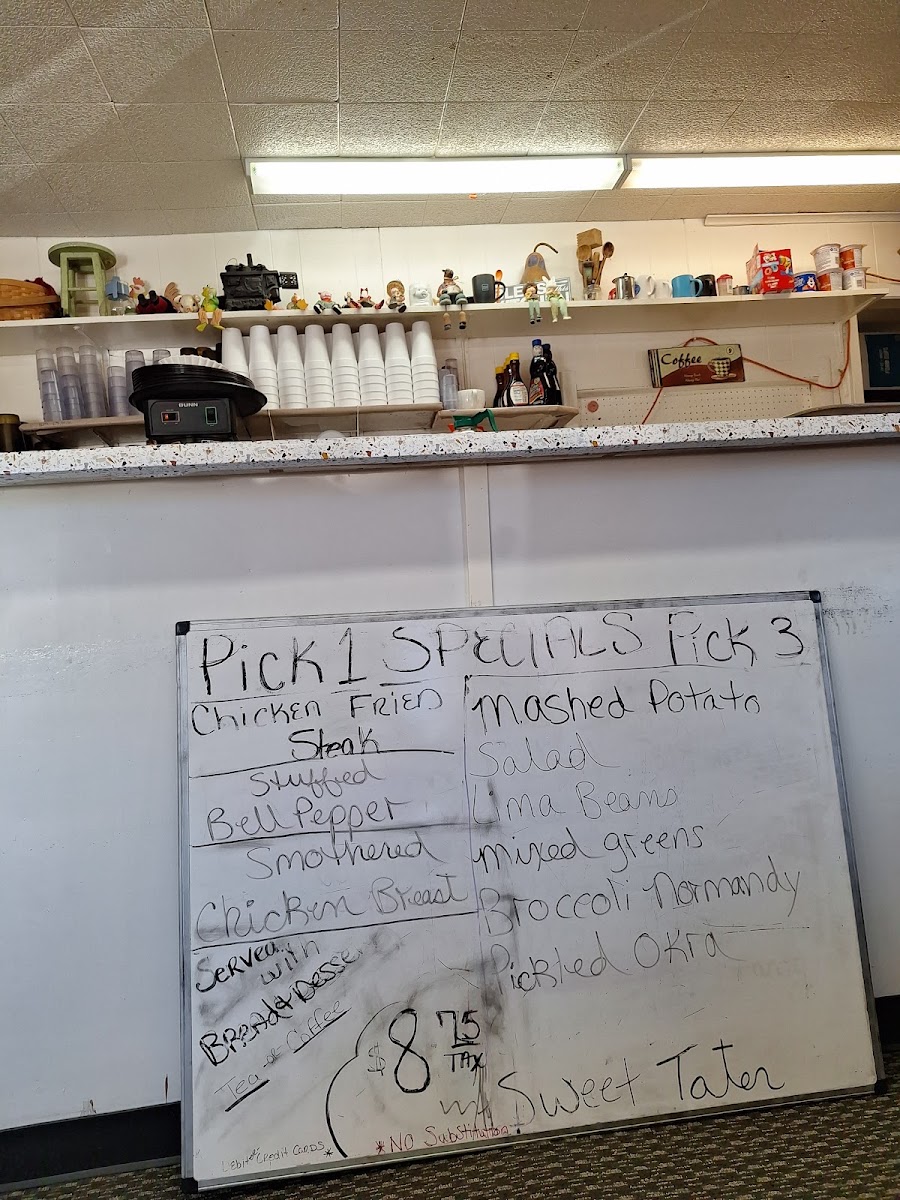 BUNN
Coffee
Pick 1 SPECIALS Pick 3
Chicken Fried
Steak
Stuffed
Bell Pepper
Smothered
Chicken Breast
Served
with
Bread & Desse
Tea or Coffee
$8 75
TAX
Debit or Credit Cards *
* No Substitution
Mashed Potato
Salad
Lima Beans
mixed greens
Broccoli Normandy
Pickled Okra
Sweet Tater